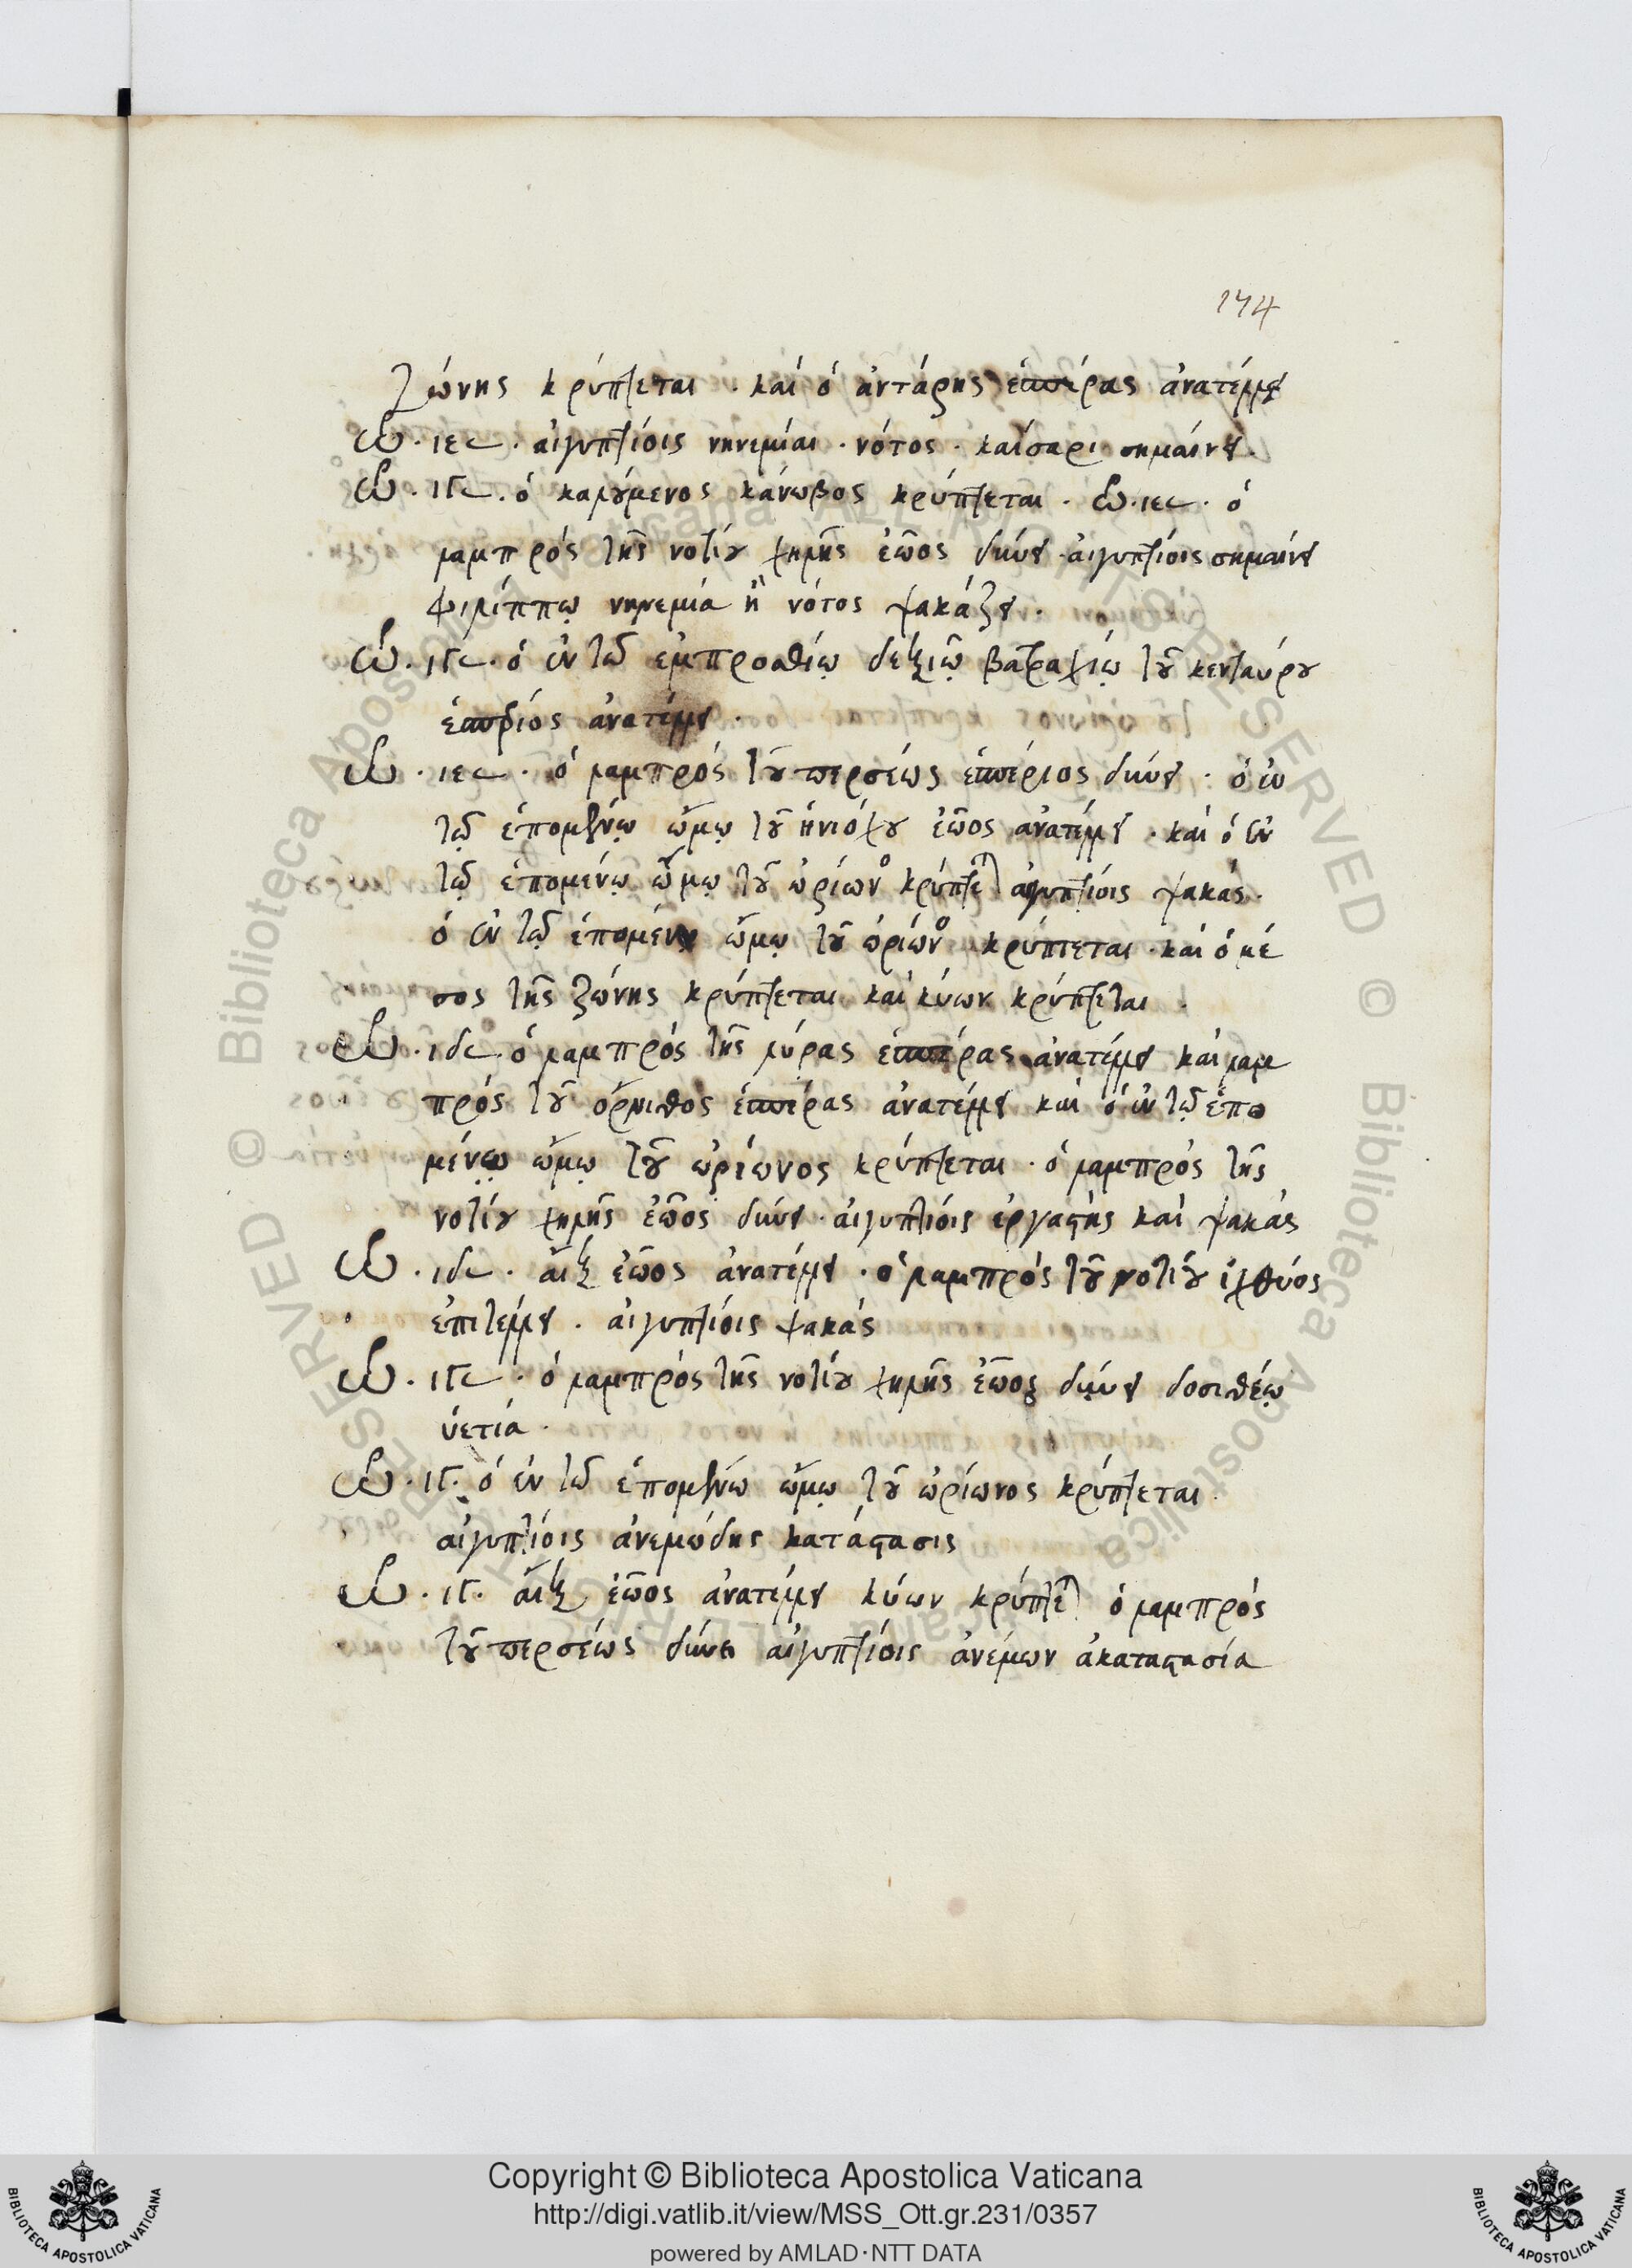 174
ζώνης κρύπτεται · καὶ ὁ ἀντάρης ἑσπέρας ἀνατέλλει
ὡ · ιε 𐅵 · αἰγυπτίοις νηνεμίαι · νότος · καίσαρι σημαίνει ·
ὡ · ιγ 𐅵 · ὁ καλούμενος κάνωβος κρύπτεται · ὡ · ιε 𐅵 · ὁ
λαμπρὸς τῆς νοτίου χηλῆς ἑῶος δύνει · αἰγυπτίοις σημαίνει
φιλίππῳ νηνεμία ἢ νότος ψακάζει ·
ὡ · ιγ 𐅵 · ὁ ἐν τῷ ἐμπροσθίῳ δεξιῷ βατραχίῳ τοῦ κενταύρου
ἑσπέριος ἀνατέλλει ·
ὡ · ιε 𐅵 · ὁ λαμπρὸς τοῦ περσέως ἑσπέριος δύνει · ὁ ἐν
τῷ ἑπομένῳ ὤμῳ τοῦ ἡνιόχου ἑῶος ἀνατέλλει · καὶ ὁ ἐν
τῷ ἑπομένῳ ὤμῳ τοῦ ὠρίωνος κρύπτεται αἰγυπτίοις ψακάς ·
ὁ ἐν τῷ ἑπομένῳ ὤμῳ τοῦ ὠρίωνος κρύπτεται · καὶ ὁ μέ
σος τῆς ζώνης κρύπτεται καὶ κύων κρύπτεται ·
ὡ · ιδ 𐅵 · ὁ λαμπρὸς τῆς λύρας ἑσπέρας ἀνατέλλει καὶ λαμ
πρὸς τοῦ ὄρνιθος ἑσπέρας ἀνατέλλει καὶ ὁ ἐν τῷ ἑπο
μένῳ ὤμῳ τοῦ ὠρίωνος κρύπτεται · ὁ λαμπρὸς τῆς
νοτίου χηλῆς ἑῶος δύνει · αἰγυπτίοις ἀργαστὴς καὶ ψακὰς
ὡ · ιδ 𐅵 · αἲξ ἑῶος ἀνατέλλει · ὁ λαμπρὸς τοῦ νοτίου ἰχθύος
ἐπιτέλλει · αἰγυπτίοις ψακάς
ὡ · ιγ 𐅵 · ὁ λαμπρὸς τῆς νοτίου χηλῆς ἑῶος δύνει δοσιθέῳ
ὑετία ·
ὡ · ιγ · ὁ ἐν τῷ ἑπομένῳ ὤμῳ τοῦ ὠρίωνος κρύπτεται
αἰγυπτίοις ἀνεμώδης κατάστασις
ὡ · ιγ · αἲξ ἑῶος ἀνατέλλει κύων κρύπτεται ὁ λαμπρὸς
τοῦ περσέως δύνει αἰγυπτίοις ἀνέμων ἀκαταστασία
Copyright © Biblioteca Apostolica Vaticana
http://digi.vatlib.it/view/MSS_Ott.gr.231/0357
powered by AMLAD·NTT DATA